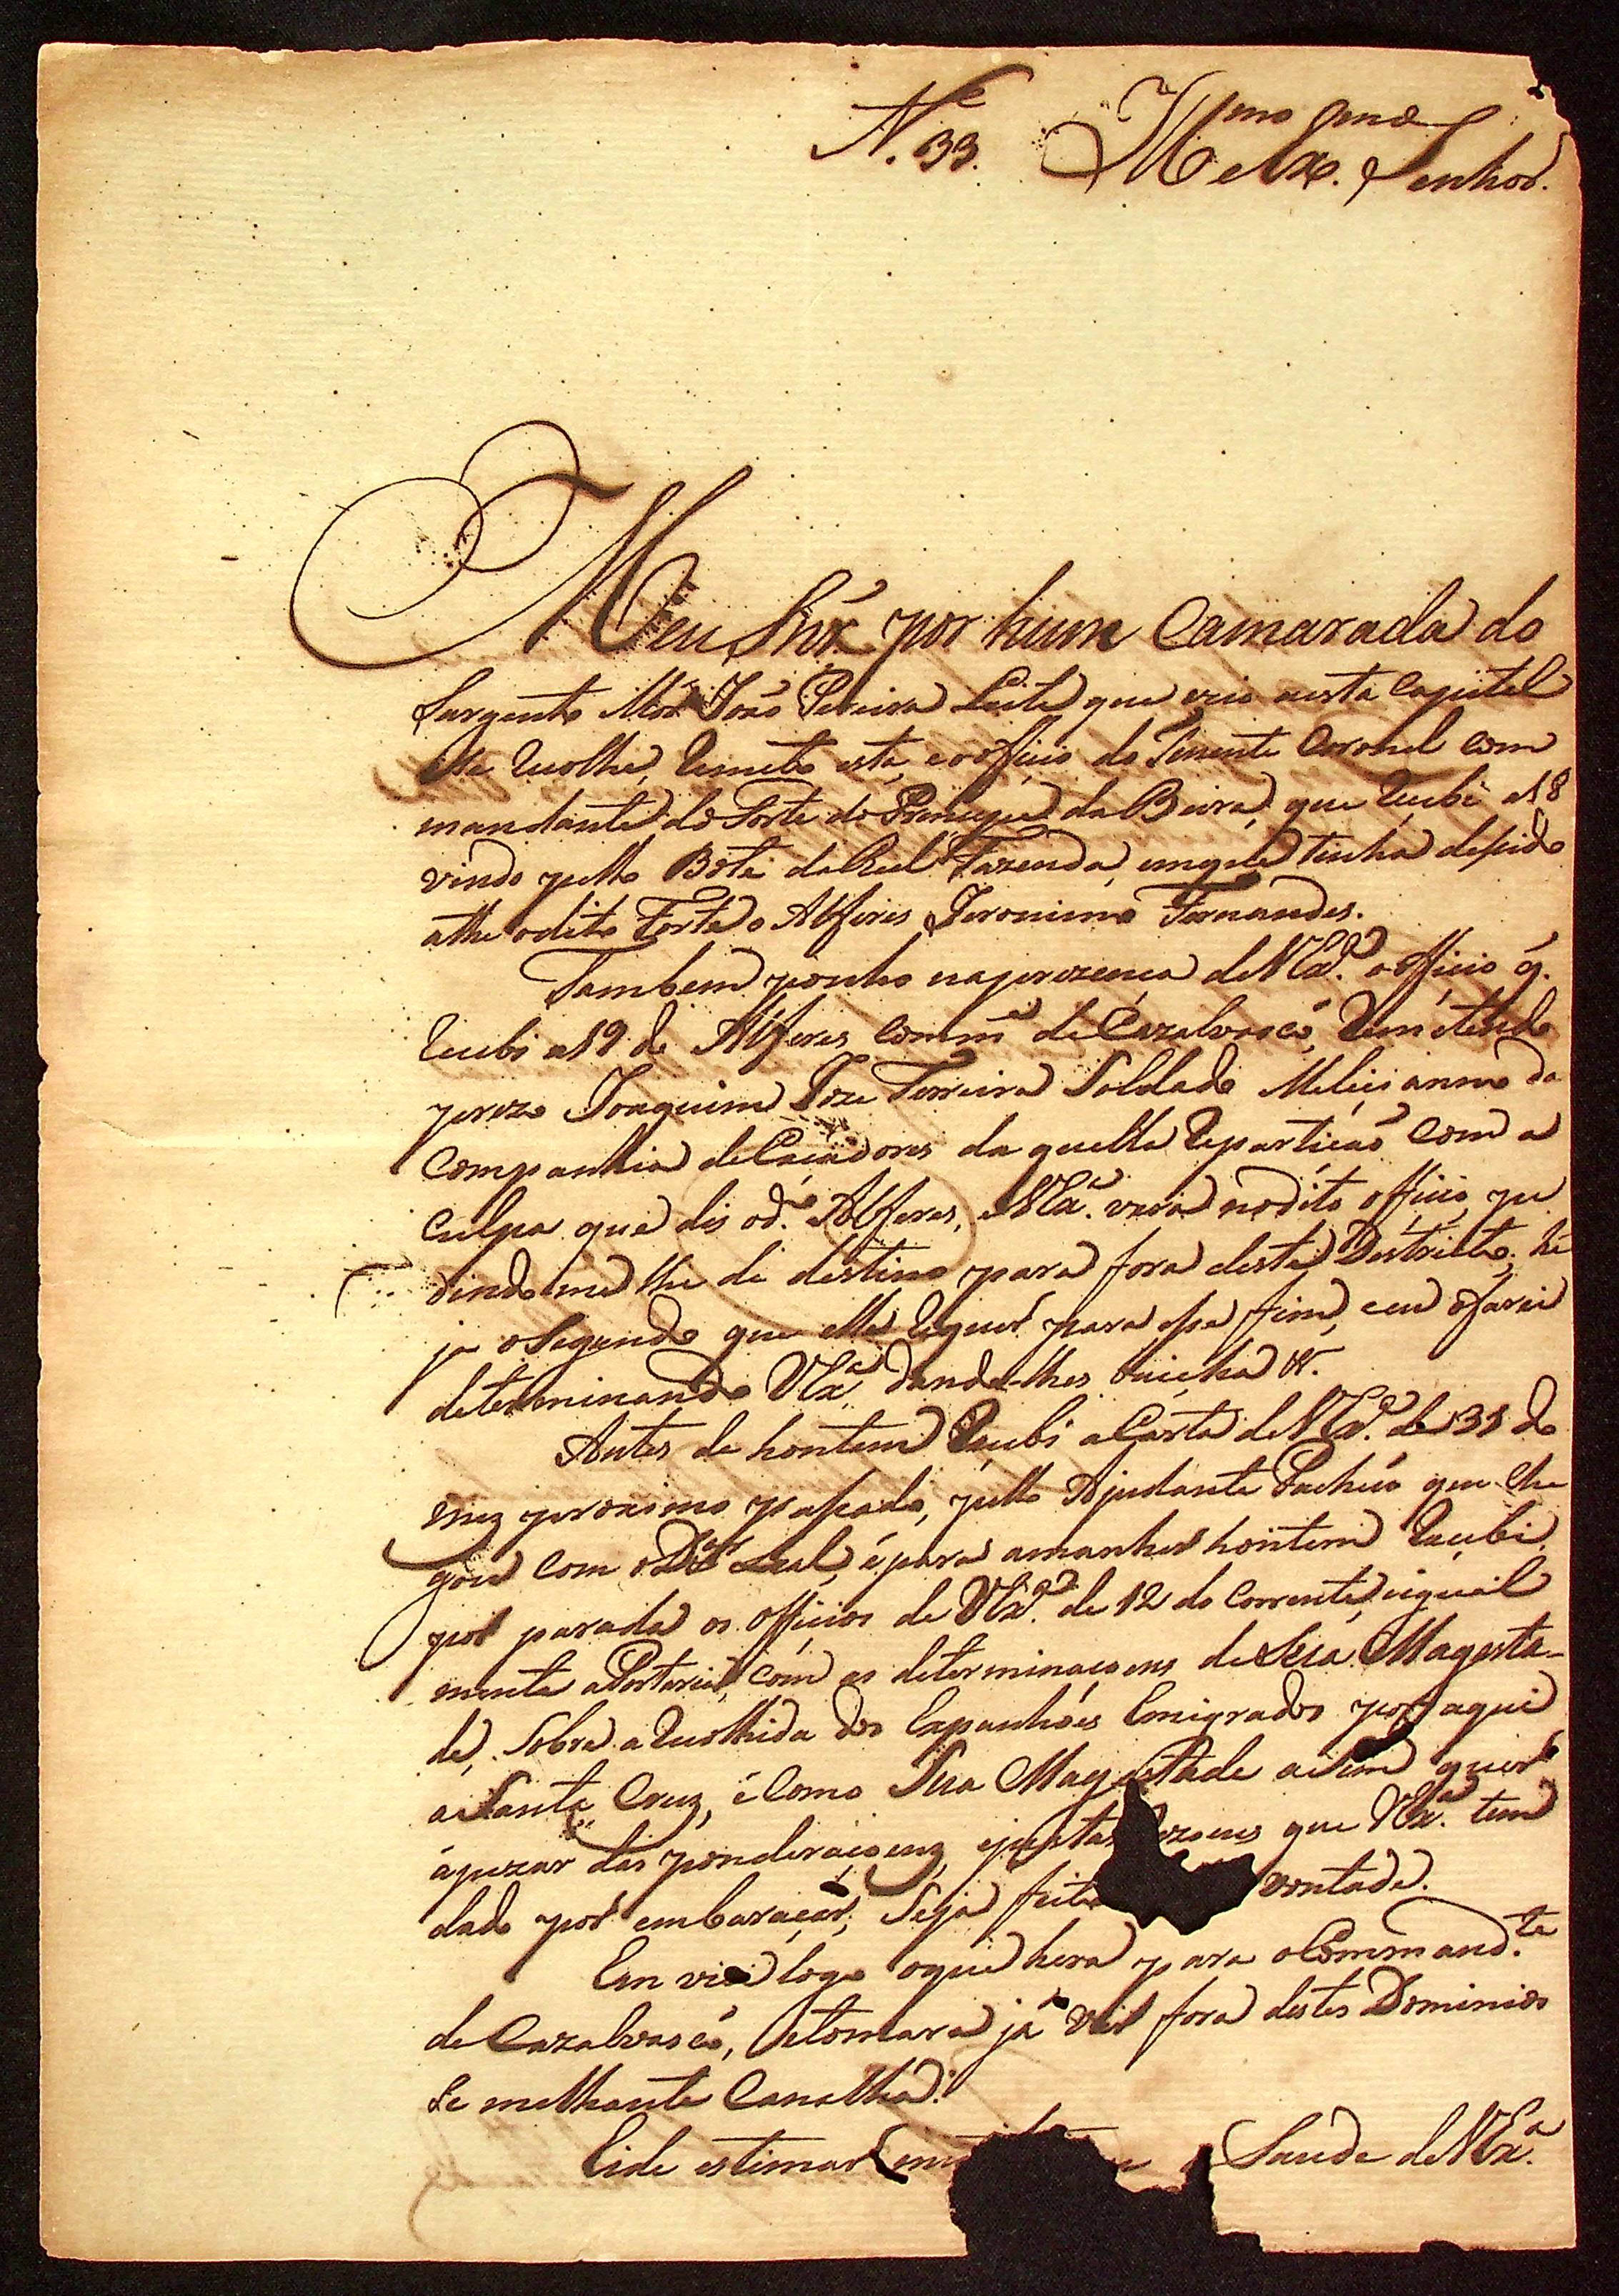 N.e 33. Ill.mo e Ex.mo Senhor.
Meu Snór por hum Camarada do
Sargento Mór João Pereira Leite que veio a esta Capital
e se recolhe, remeto esta, e o officio do Tenente Coronel com
mandante do Forte do Principe da Beira, que recebi a 18
vindo pello Bote da Real Fazenda, em que tinha desido
athe o dito Forte o Alferes Jeronimo Fernandes.
Tambem ponho na prezença de V Ex.a o officio q.
recebi a 19 do Alferes Comm.e de Cazalvasco, remetendo
prezo Joaquim Joze Ferreira Soldado Meliciano da
Companhia de Caçadores da quella repartição com a
Culpa que dis o d.o Alferes, e V Ex.a verá no dito officio, pe
dindo me lhe dê destino para fora deste Destricto; hé
já o Segundo que elle requer para esse fim, e eu o farei
determinando V Ex.a dando-lhes
Antes de hontem recebi a Carta de V Ex.a de 31 do
mez proximo passado, pello Ajudante Pacheco que che
gou com o D.or Leal, e para amanher hontem recebi
por parada os officios de V Ex.a de 12 do Corrente, igual
mente a Portaria, com as determinaçoens de Sua Magesta-
de, Sobre a recolhida dos Espanhóes Emigrados por aqui
a Santa Cruz, e Como Sua Magestade asim quer
apezar das ponderaçoens, e justas rezoens que V Ex.a tem
dado por embaraçar, Seja feita vontade.
Em viei logo o que hera para o Command.te
de Cazalvasco, e tomara já ver fora destes Dominios
Se melhante Canalha.
Eide estimar Saude de V Ex.a